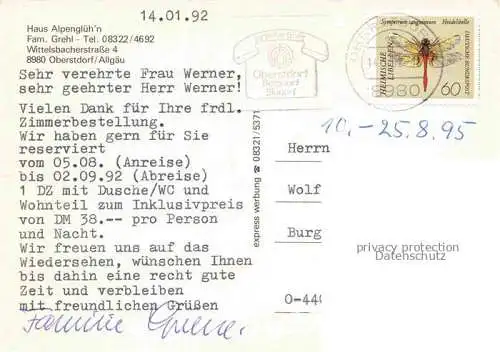 14.01.92
Haus Alpenglüh'n
Fam. Grehl - Tel. 08322/4692
Wittelsbacherstraße 4
8980 Oberstdorf/Allgäu
Sehr verehrte Frau Werner,
sehr geehrter Herr Werner!
Vielen Dank für Ihre frdl.
Zimmerbestellung.
Wir haben gern für Sie
reserviert
vom 05.08. (Anreise)
bis 02.09.92 (Abreise)
1 DZ mit Dusche/WC und
Wohnteil zum Inklusivpreis
von DM 38.-- pro Person
und Nacht.
Wir freuen uns auf das
Wiedersehen, wünschen Ihnen
bis dahin eine recht gute
Zeit und verbleiben
mit freundlichen Grüßen
Familie
express werbung ☎ 08321/5371
Oberstdorf
Sympetrum sanguineum Heidelibelle
HEIMISCHE LIBELLEN
DEUTSCHE BUNDESPOST
60
8980
10.-25.8.95
Herrn
Wolf
Burg
O-440
privacy protection
Datenschutz